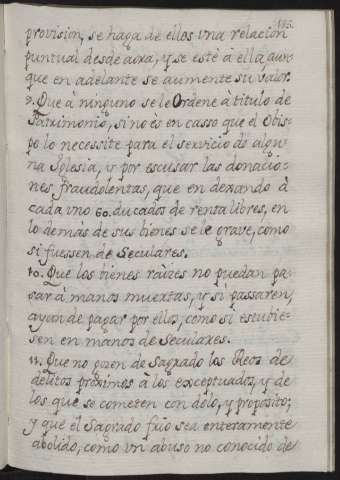 195.
provision, se haga de ellos una relacion
puntual desde aora, y se estè à ella, aun
que en adelante se aumente su valor.
9. Que à ninguno se le Ordene à titulo de
Patrimonio, si no ès en casso que el Obis-
po lo necessite para el servicio de algu
na Iglesia, y por escusar las donacio-
nes fraudolentas, que en dexando à
cada uno 60. ducados de renta libres, en
lo demàs de sus bienes se le grave, como
si fuessen de Seculares.
10. Que los bienes raizes no puedan pa-
sar à manos muertas, y si passaren,
ayan de pagar por ellos, como si estubie-
sen en manos de Seculares.
11. Que no gozen de Sagrado los Reos de
delitos proximos à los exceptuados, y de
los que se cometen con dolo, y proposito;
y que el Sagrado frio sea enteramente
abolido, como un abuso no conocido de